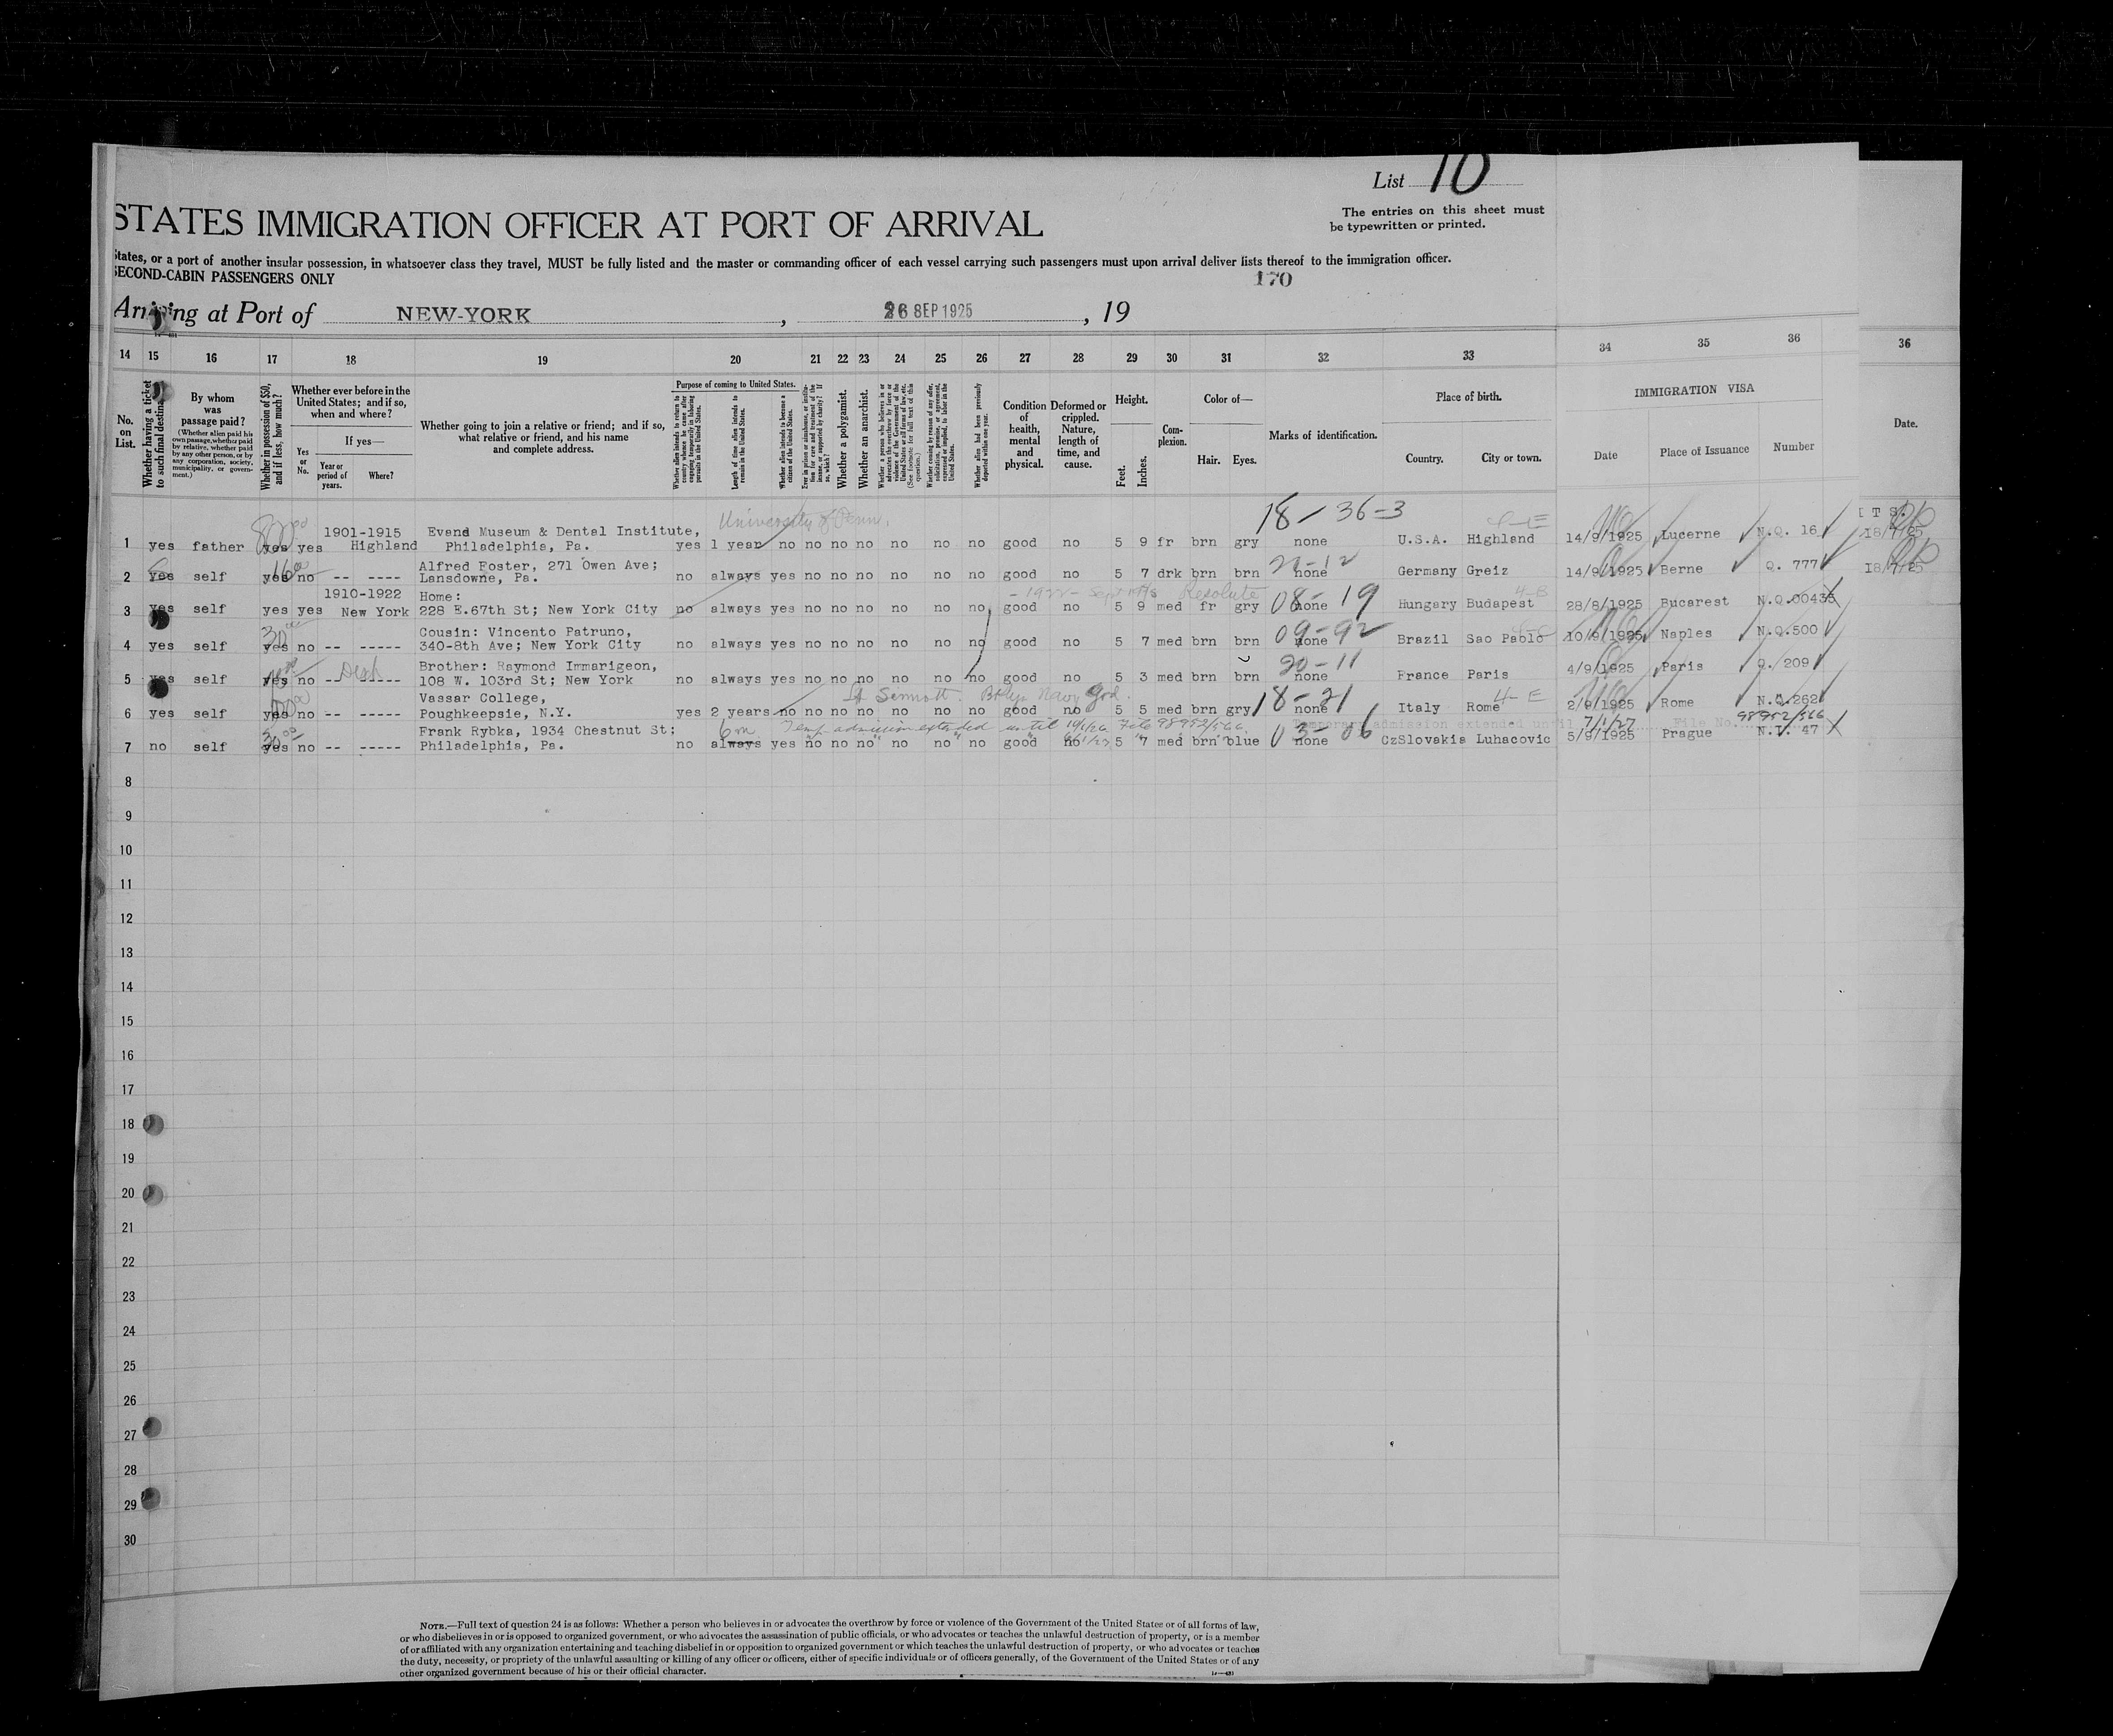 List 10
The entries on this sheet must
be typewritten or printed.
STATES IMMIGRATION OFFICER AT PORT OF ARRIVAL
States, or a port of another insular possession, in whatsoever class they travel, MUST be fully listed and the master or commanding officer of each vessel carrying such passengers must upon arrival deliver lists thereof to the immigration officer.
SECOND-CABIN PASSENGERS ONLY
170
Arriving at Port of NEW-YORK, 26 SEP 1925, 19
14 15 16 17 18 19 20 21 22 23 24 25 26 27 28 29 30 31 32 33 34 35 36 36
No. on List.
Whether having a ticket to such final destina
By whom was passage paid?
(Whether alien paid his own passage, whether paid by relative, whether paid by any other person, or by any corporation, society, municipality, or government.)
Whether in possession of $50, and if less, how much?
Whether ever before in the United States; and if so, when and where?
Yes or No.
If yes—
Year or period of years.
Where?
Whether going to join a relative or friend; and if so, what relative or friend, and his name and complete address.
Purpose of coming to United States.
Length of time alien intends to remain in the United States.
Whether alien intends to become a citizen of the United States.
Whether a polygamist.
Whether an anarchist.
Whether alien had been previously deported within one year.
Condition of health, mental and physical.
Deformed or crippled. Nature, length of time, and cause.
Height.
Feet.
Inches.
Complexion.
Color of—
Hair. Eyes.
Marks of identification.
Place of birth.
Country. City or town.
IMMIGRATION VISA
Date Place of Issuance Number
Date.
University of Penn. 18-36-3
1 yes father yes yes 1901-1915 Highland Evend Museum & Dental Institute, Philadelphia, Pa. yes 1 year no no no no no no no good no 5 9 fr brn gry none U.S.A. Highland 14/9/1925 Lucerne N.Q. 16 18/7/25
2 yes self yes no -- ---- Alfred Foster, 271 Owen Ave; Lansdowne, Pa. no always yes no no no no no no good no 5 7 drk brn brn none Germany Greiz 14/9/1925 Berne Q. 777 18/7/25
Resolute
3 yes self yes yes 1910-1922 New York Home: 228 E.67th St; New York City no always yes no no no no no no good no 5 9 med fr gry none 08-19 Hungary Budapest 28/8/1925 Bucarest N.Q.00435
4 yes self yes no -- ----- Cousin: Vincento Patruno, 340-8th Ave; New York City no always yes no no no no no no good no 5 7 med brn brn none 09-92 Brazil Sao Pablo 10/9/1925 Naples N.Q.500
5 yes self yes no -- ----- Brother: Raymond Immarigeon, 108 W. 103rd St; New York no always yes no no no no no no good no 5 3 med brn brn none 20-11 France Paris 4/9/1925 Paris Q. 209
6 yes self yes no -- ----- Vassar College, Poughkeepsie, N.Y. yes 2 years no no no no no no no good no 5 5 med brn gry none 18-21 Italy Rome 4-E 2/9/1925 Rome N.Q.262
6 m Temp admission extended until
Temporary admission extended until 7/1/27 File No. 98952/566
7 no self yes no -- ----- Frank Rybka, 1934 Chestnut St; Philadelphia, Pa. no always yes no no no no no no good no 5 7 med brn blue none 03-06 CzSlovakia Luhacovic 5/9/1925 Prague N.I. 47
8
9
10
11
12
13
14
15
16
17
18
19
20
21
22
23
24
25
26
27
28
29
30
NOTE.—Full text of question 24 is as follows: Whether a person who believes in or advocates the overthrow by force or violence of the Government of the United States or of all forms of law,
or who disbelieves in or is opposed to organized government, or who advocates the assassination of public officials, or who advocates or teaches the unlawful destruction of property, or is a member
of or affiliated with any organization entertaining and teaching disbelief in or opposition to organized government or which teaches the unlawful destruction of property, or who advocates or teaches
the duty, necessity, or propriety of the unlawful assaulting or killing of any officer or officers, either of specific individuals or of officers generally, of the Government of the United States or of any
other organized government because of his or their official character.